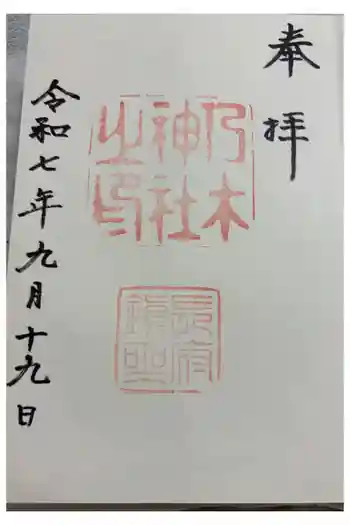 奉拝
乃木
神社
之印
長府
鎮座
令和七年九月十九日